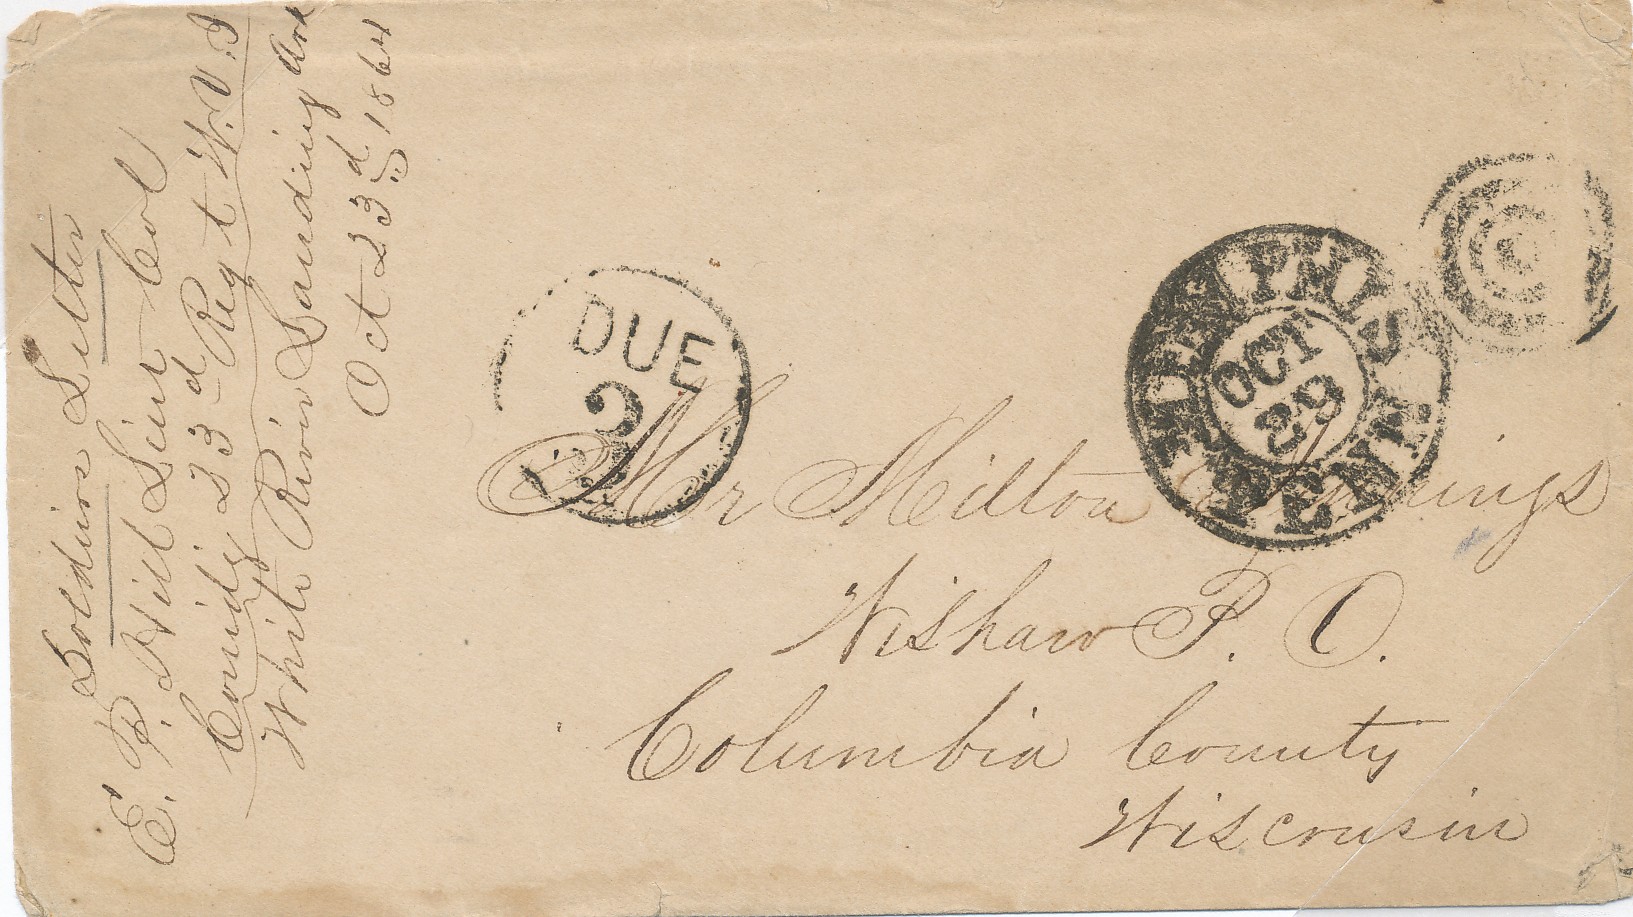 Soldiers Letter
E. P. Hill Lieut Col
Comdg 23d Regt W. V. I
White River Landing Ark
Oct 23d 1864
DUE
2
MEMPHIS TENN.
OCT
29
Mr Milton
Wishaw P. O.
Columbia County
Wisconsin